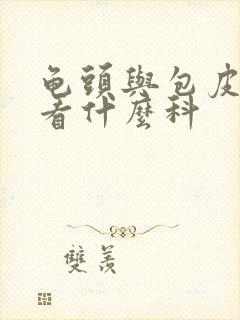 龟頭與包皮
看什麼科
雙羨